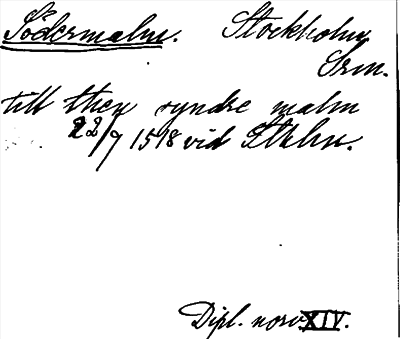 Södermalm. Stockholm
Srm.
till then syndre malm
22/9 1518 vid Sthlm.
Dipl. norv. XIV.